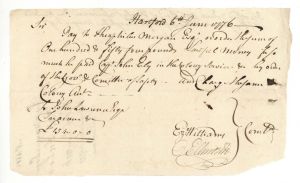 Hartford 6th June 1776
Sir
Pay to Theophilus Morgan Esqr or order the sum of
One hundred & fifty four pounds Lawful Money for so
much he paid Capt John Ely in the Colony Service & by order
of the Govr & Comittee of Safety and Charge the same
Colony Acct
To John Lawrence Esqr
Treasurer &c
£ 154-0-0
Ez Williams
Comtt